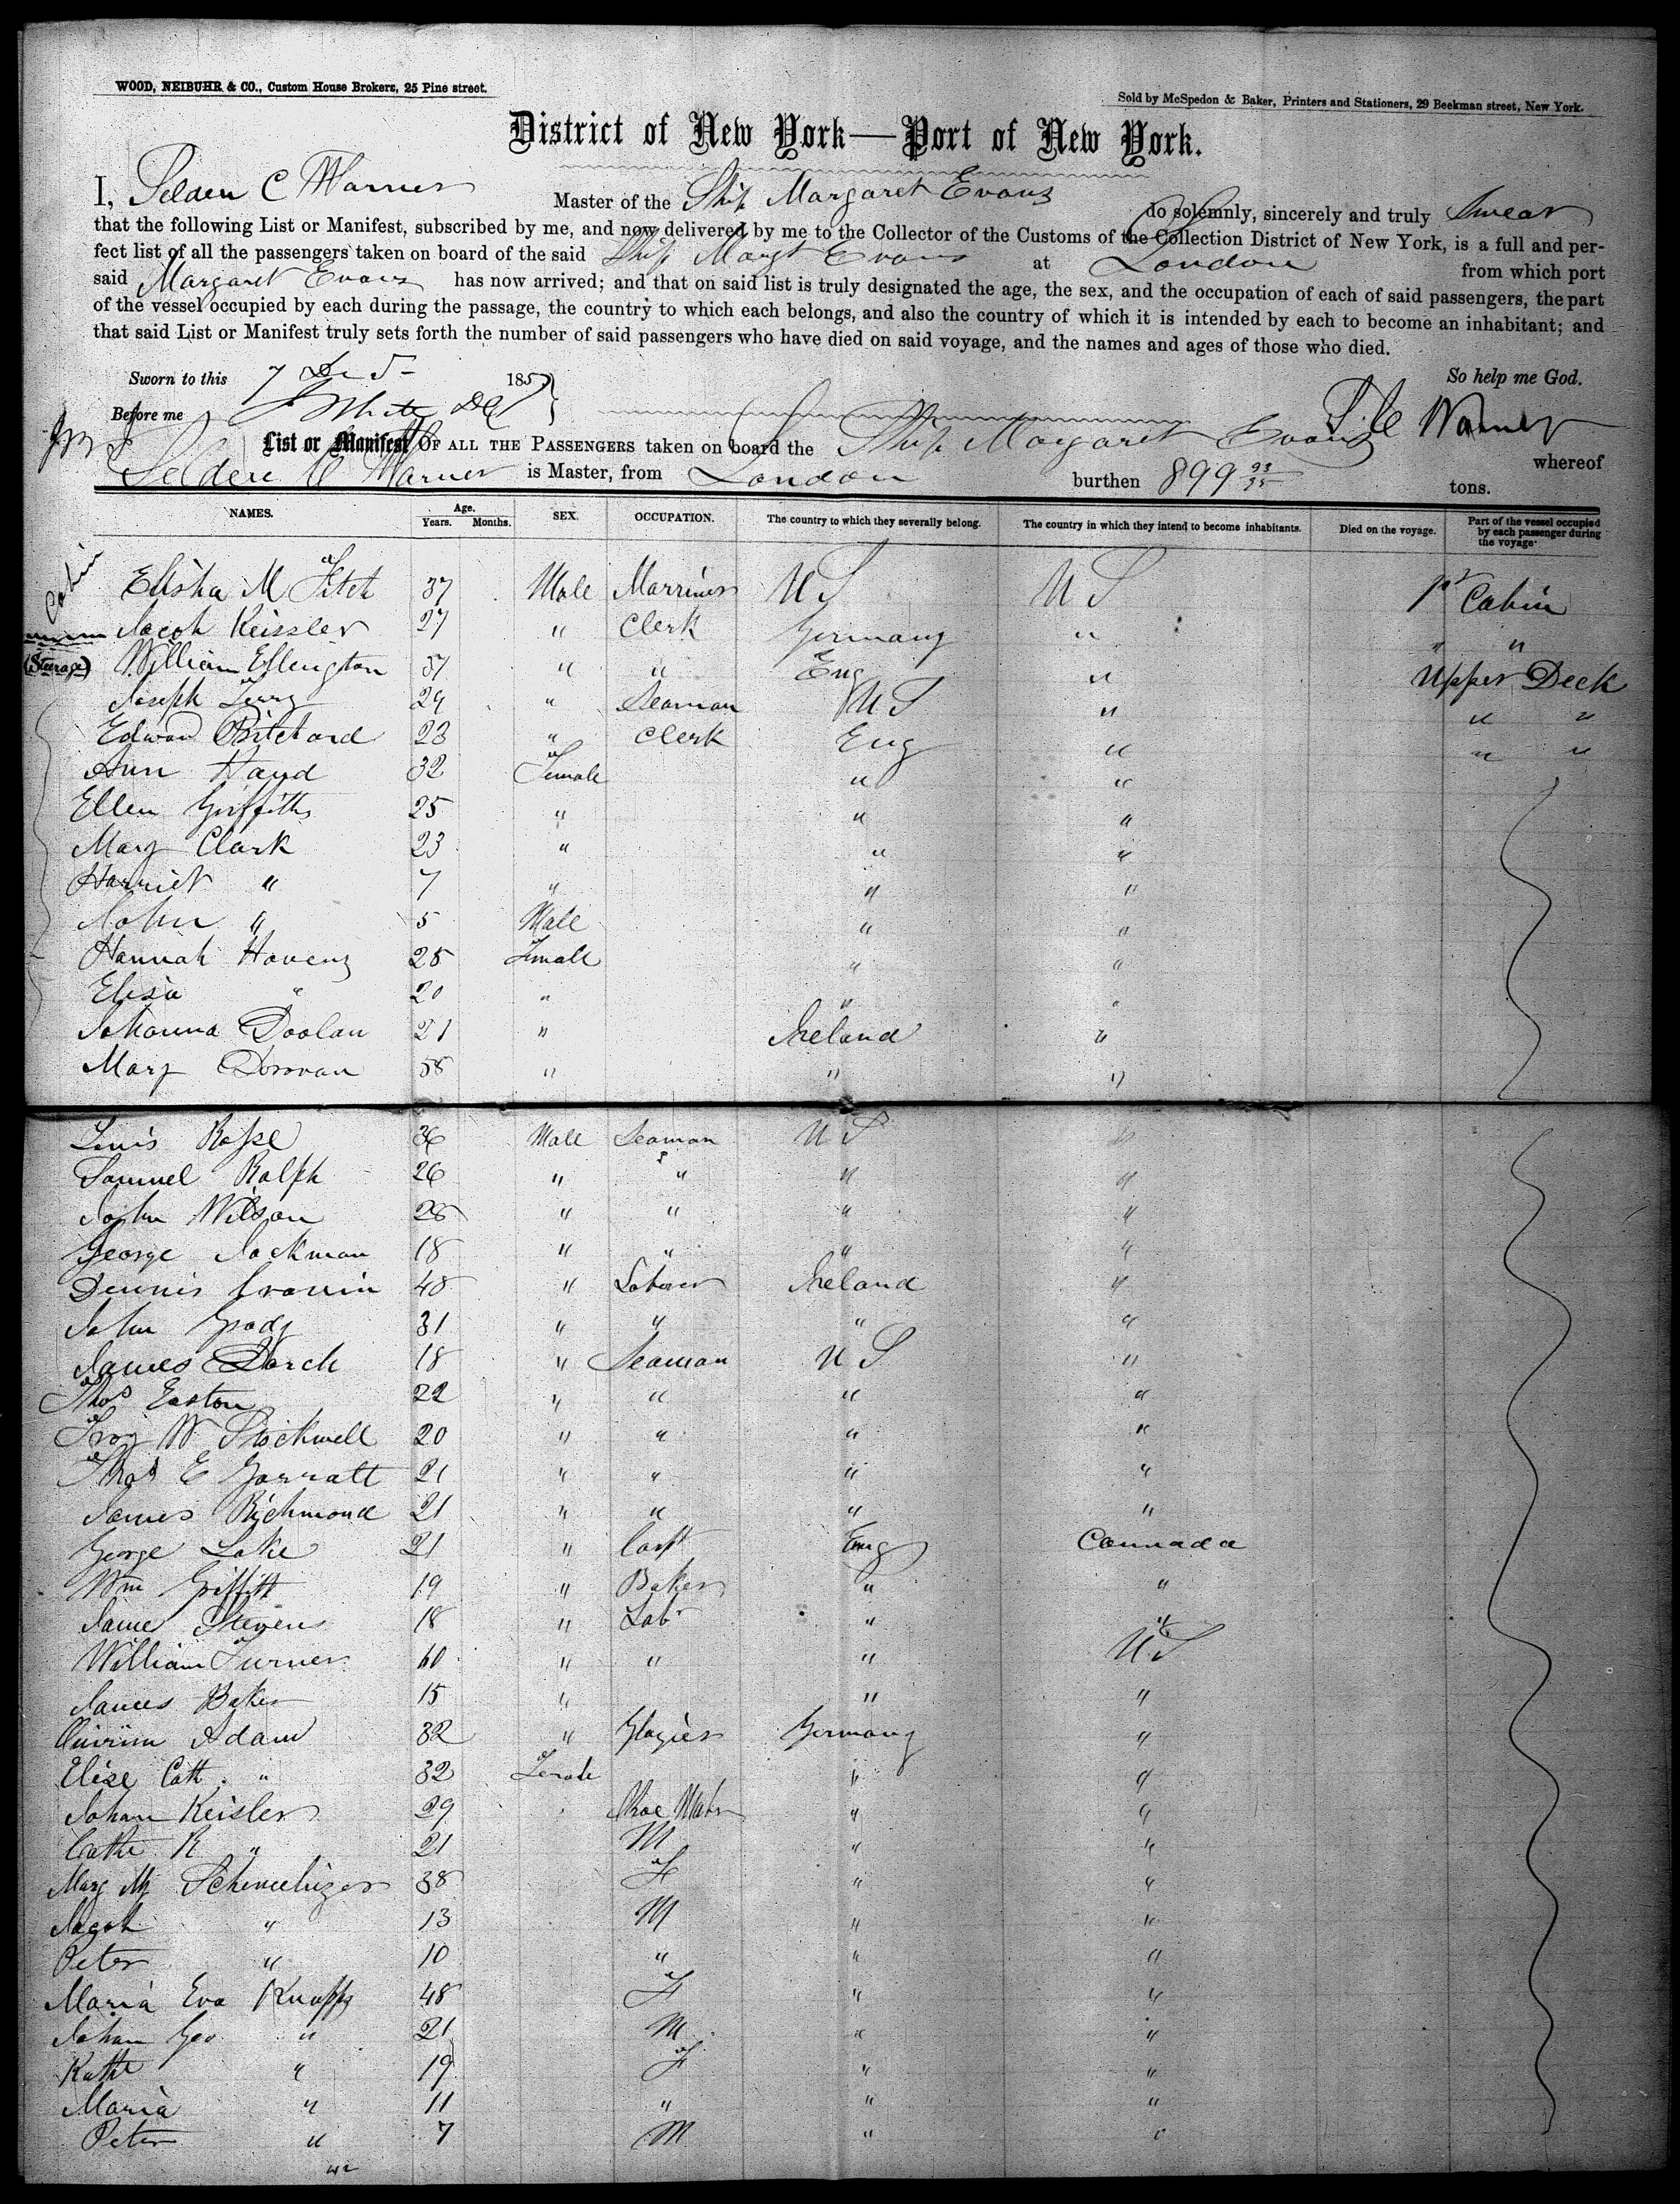 WOOD, NEIBUHR & CO., Custom House Brokers, 25 Pine street.
Sold by McSpedon & Baker, Printers and Stationers, 29 Beekman street, New York.
District of New York—Port of New York.
I, Selden C Warner Master of the Ship Margaret Evans do solemnly, sincerely and truly Swear
that the following List or Manifest, subscribed by me, and now delivered by me to the Collector of the Customs of the Collection District of New York, is a full and per-
fect list of all the passengers taken on board of the said Ship Margt Evans at London from which port
said Margaret Evans has now arrived; and that on said list is truly designated the age, the sex, and the occupation of each of said passengers, the part
of the vessel occupied by each during the passage, the country to which each belongs, and also the country of which it is intended by each to become an inhabitant; and
that said List or Manifest truly sets forth the number of said passengers who have died on said voyage, and the names and ages of those who died.
Sworn to this 7 1857 So help me God.
Before me White S. C Warner
List or Manifest OF ALL THE PASSENGERS taken on board the Ship Margaret Evans whereof
Selden C Warner is Master, from London burthen 899 93/95 tons.
NAMES. Age. Years. Months. SEX. OCCUPATION. The country to which they severally belong. The country in which they intend to become inhabitants. Died on the voyage. Part of the vessel occupied by each passenger during the voyage.
Cabin Elisha M Fitch 37 Male Marriner U S U S 1st Cabin
Jacob Keissler 27 " Clerk Germany " " "
(Steerage) William Ellington 37 " " Eng " Upper Deck
Joseph Terry 24 " Seaman U S " " "
Edward Pritchard 23 " Clerk Eng " " "
Ann Hand 32 Female " "
Ellen Griffiths 25 " " "
Mary Clark 23 " " "
Harriet " 7 " " "
John " 5 Male " "
Hannah Havens 25 Female " "
Elisa " 20 " " "
Johanna Doolan 21 " Ireland "
Mary Donovan 58 " " "
Louis Rosse 36 Male Seaman U S "
Samuel Ralph 26 " " " "
John Wilson 28 " " " "
George Jackman 18 " " " "
Dennis Cronin 48 " Laborer Ireland "
John Grady 31 " " " "
James Dorch 18 " Seaman U S "
Thos Easton 22 " " " "
Troy W Stockwell 20 " " " "
Thos E Garratt 21 " " " "
James Richmond 21 " " " "
George Lake 21 " Carpt Eng Cannada
Wm Griffith 19 " Baker " "
Jame Stevens 18 " Labr " "
William Turner 60 " " " U S
James Baker 15 " " "
Quirim Adam 32 " Glazier Germany "
Elize Cath " 32 Female " "
Johan Keisler 29 Shoe Makr " "
Cathe R " 21 M " "
Marg M 38 F " "
Jacob " 13 M " "
Peter " 10 " " "
Maria Eva Knapps 48 F " "
Johan Geo " 21 M " "
Kathe " 19 F " "
Maria " 11 " " "
Peter " 7 M " "
42